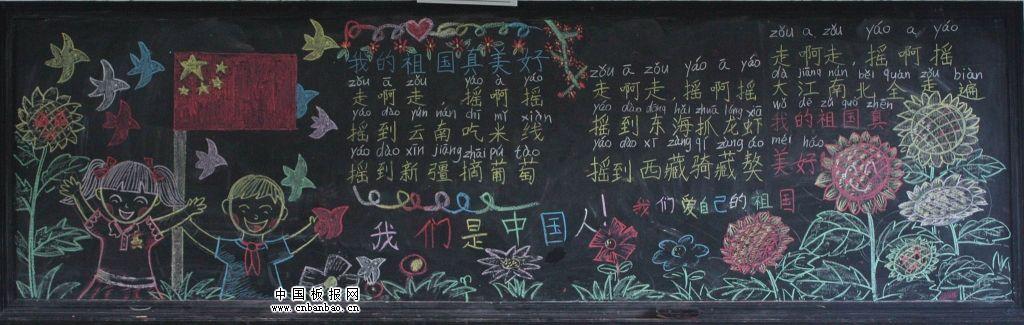 我的祖国真美好
zǒu ā zǒu yáo ā yáo
走啊走，摇啊摇
yáo dào yún nán chī mǐ xiàn
摇到云南吃米线
yáo dào xīn jiāng zhāi pú táo
摇到新疆摘葡萄
zǒu ā zǒu yáo ā yáo
走啊走，摇啊摇
yáo dào dōng hǎi zhuā lóng xiā
摇到东海抓龙虾
yáo dào xī zàng qí zàng áo
摇到西藏骑藏獒
zǒu a zǒu yáo a yáo
走啊走，摇啊摇
dà jiāng nán běi quán zǒu biàn
大江南北全走遍
wǒ de zǔ guó zhēn
我的祖国真
měi hǎo
美好
我们是中国人！
我们爱自己的祖国
中国板报网
www.cnbanbao.cn